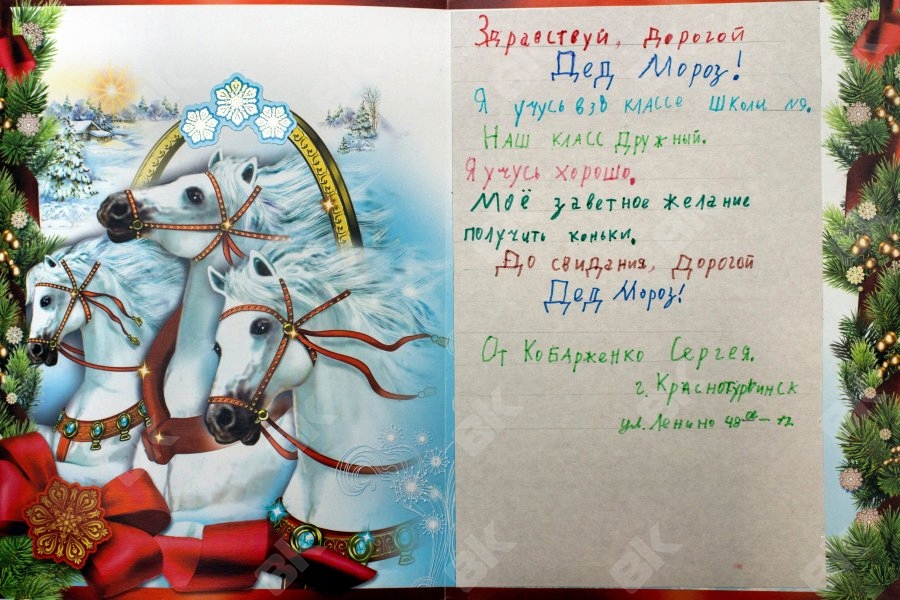 Здравствуй, дорогой
Дед Мороз!
Я учусь в 3В классе школы №9.
Наш класс дружный.
Я учусь хорошо.
Моё заветное желание
получить коньки.
До свидания, Дорогой
Дед Мороз!
От Кобарженко Сергея.
г. Краснотурьинск
ул. Ленина 48 – 12
ВК